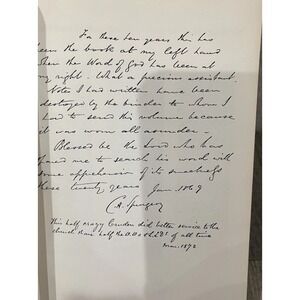 For these ten years this has
been the book at my left hand
when the Word of God has been at
my right. What a precious assistant.
Notes I had written have been
destroyed by the binder to whom I
had to send this volume because
it was worn all asunder.
Blessed be the Lord who has
spared me to search his word with
some apprehension of its sweetness
these twenty years Jan. 1869
C. H. Spurgeon
This half crazy Cruden did better service to the
church than half the D.D.s & LLDs of all time
Mar. 1872